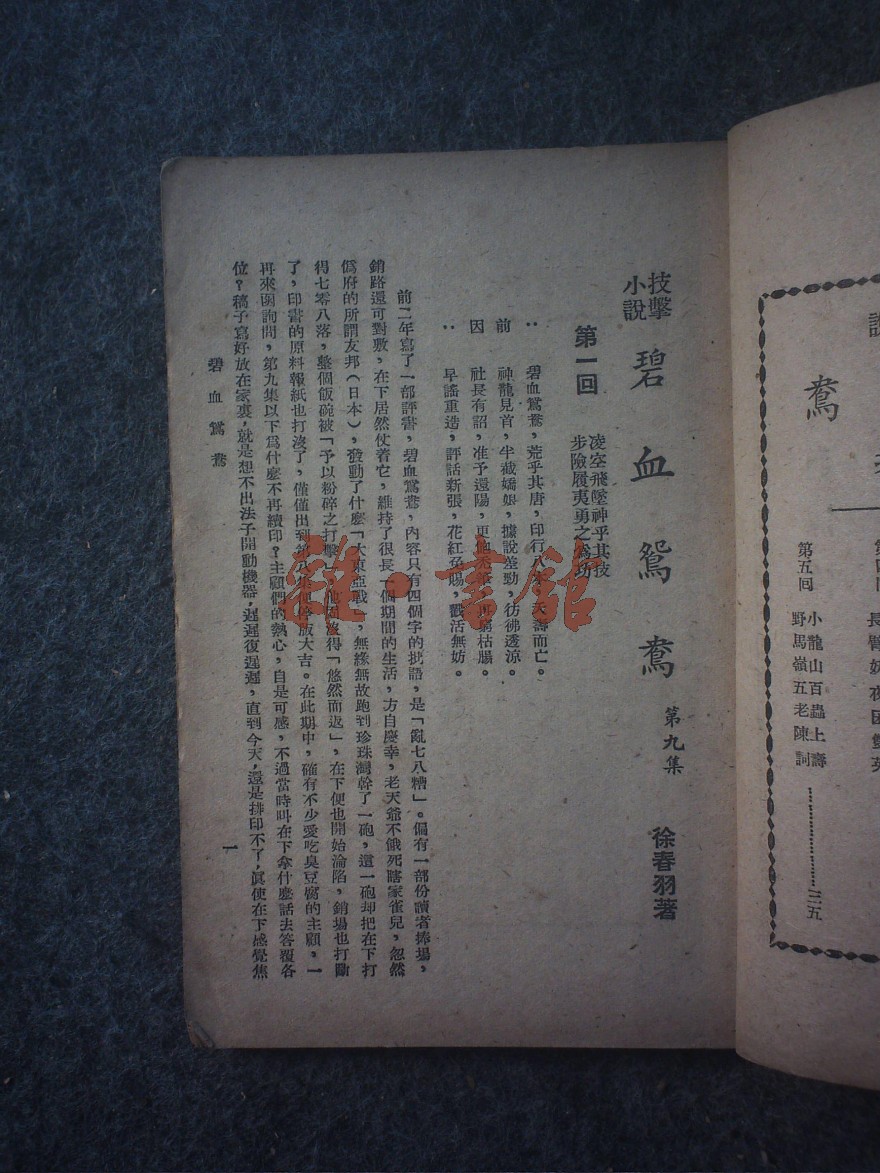 技擊
小說
碧血鴛鴦
第九集
徐春羽著
第一回
凌空飛墜神乎其技
步險履夷勇之為功
：碧血鴛鴦，荒乎其唐，印行八集，夭壽而亡。
前 神龍見首，半截嬌娘，據說差勁，彷彿透涼。
因 社長有詔，准予還陽，更 枯腸。
：早謠重造，評話新張，花紅免賜，戳活無妨。
前二年寫了一部評書，碧血鴛鴦，內容只有四個字的批語，是「亂七八糟」。偏有一部份讀者捧場，
銷路還可對敷，在下居然仗着它，維持了很長一個期間的生活，方自慶幸，老天爺不餓死瞎家雀兒，忽然
僞府的所謂友邦（日本），發動了什麽「大東亞戰」，無緣無故跑到珍珠灣幹了一砲，這一砲却把在下打
得七零八落，整個飯碗被「予以粉碎之打擊」， 沒得「悠然而返」，在下便也開始淪陷，銷塲也打斷
了，印書的原料報紙也打沒了，僅僅出到第八集便停版大吉。在此期中，確有不少愛吃臭豆腐的主顧，一
再來函詢問，第九集以下爲什麽不再續印？主顧們的熱心，自是可感，不過當時叫在下拿什麽話去答覆各
位？稿子寫好放在家裏，就是想不出法子開動機器，遲遲復遲遲，直到今天，還是排印不了，眞使在下感覺焦
碧血鴛鴦
一
說
鴦
第四回
長臂 夜困雙英
第五回
小龍山百蟲上壽
野馬嶺五老陳詞
…………二五
雜·書館